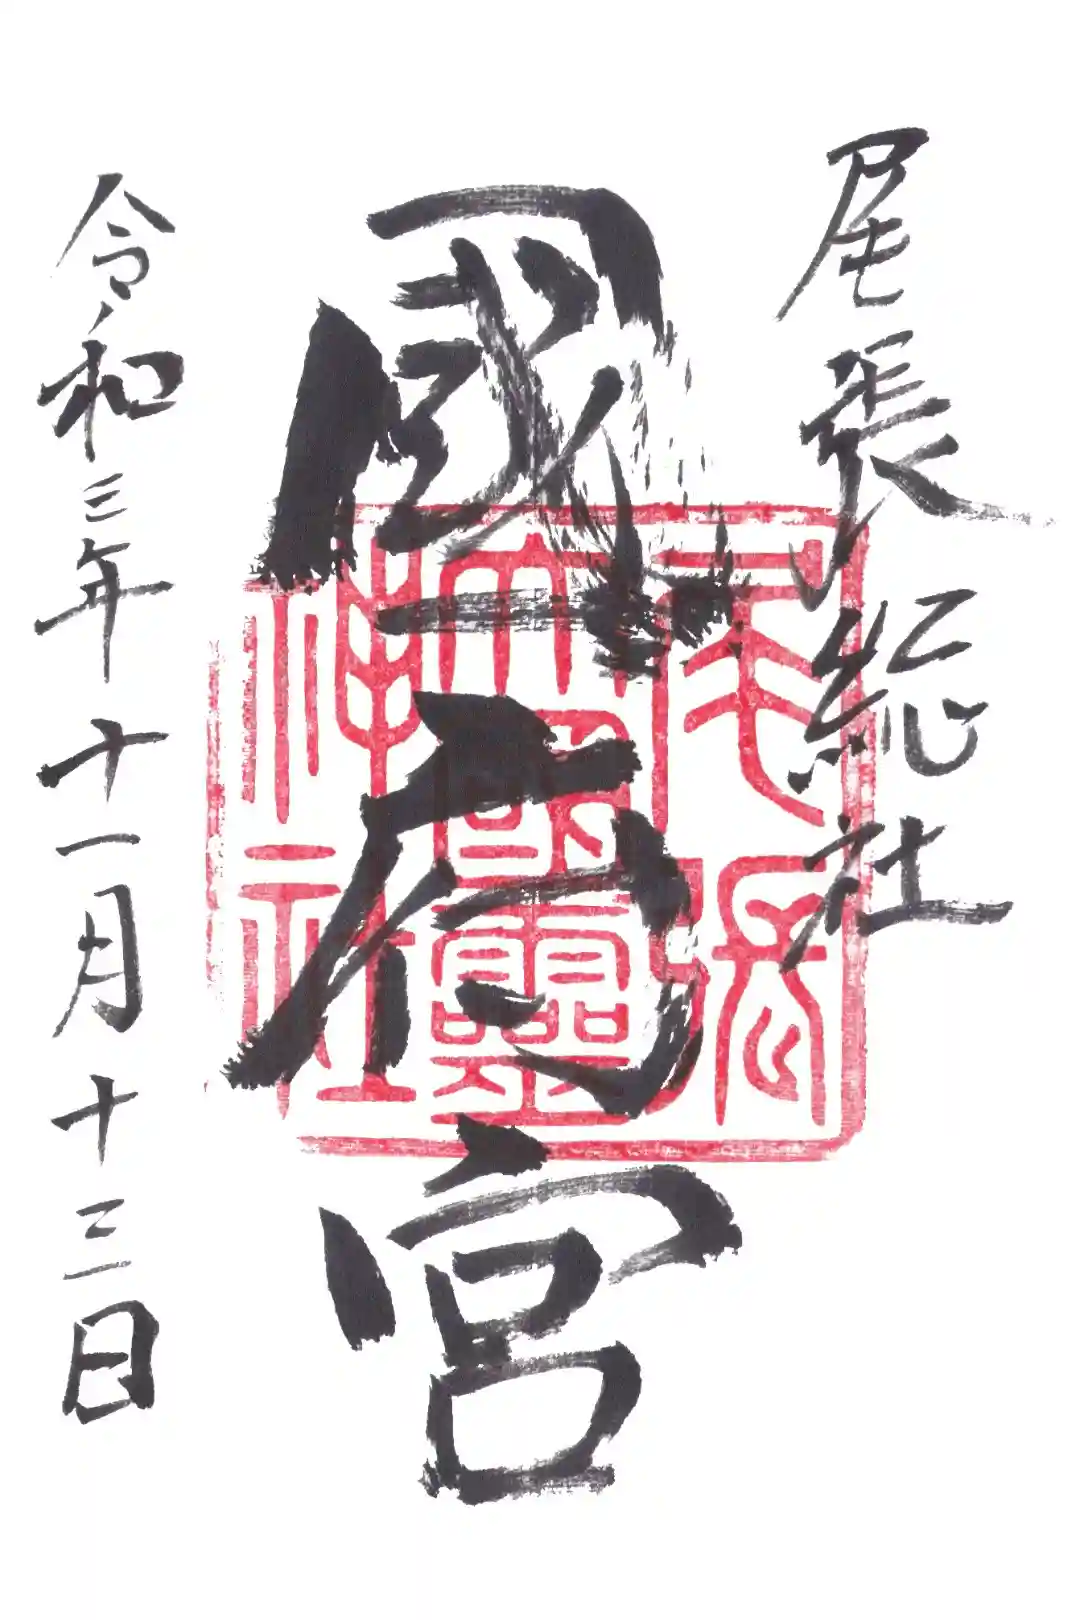 尾張総社
國府宮
尾張
大國霊
神社
令和三年十一月十三日